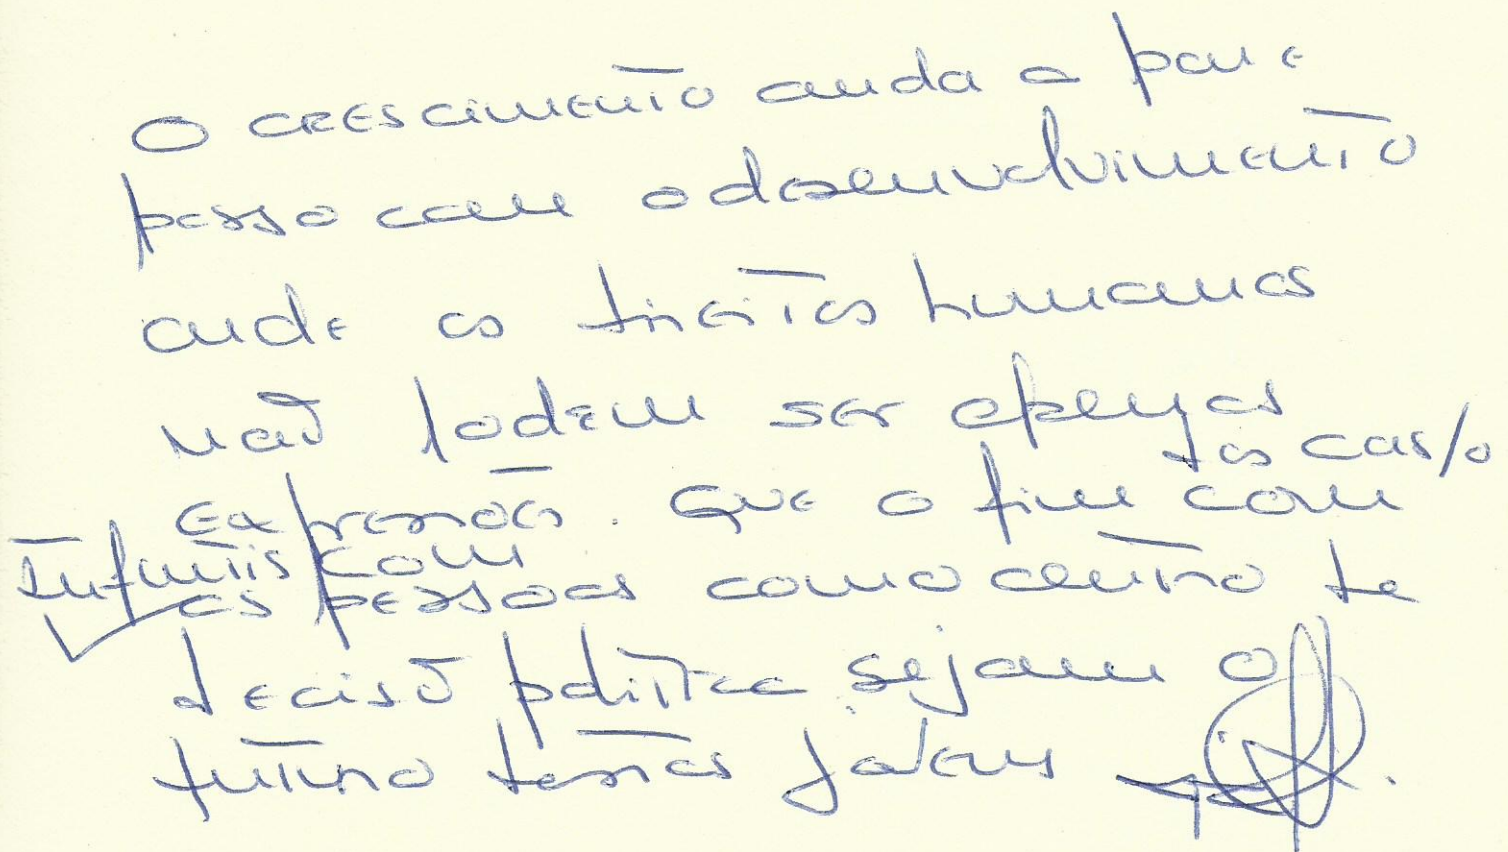 O crescimento anda a par e
passo com o desenvolvimento
onde os direitos humanos
não podem ser apenas
expressões. Que o fim com
dos casos/o
Infantis com
as pessoas como centro de
decisão política sejam o
futuro destas jovens